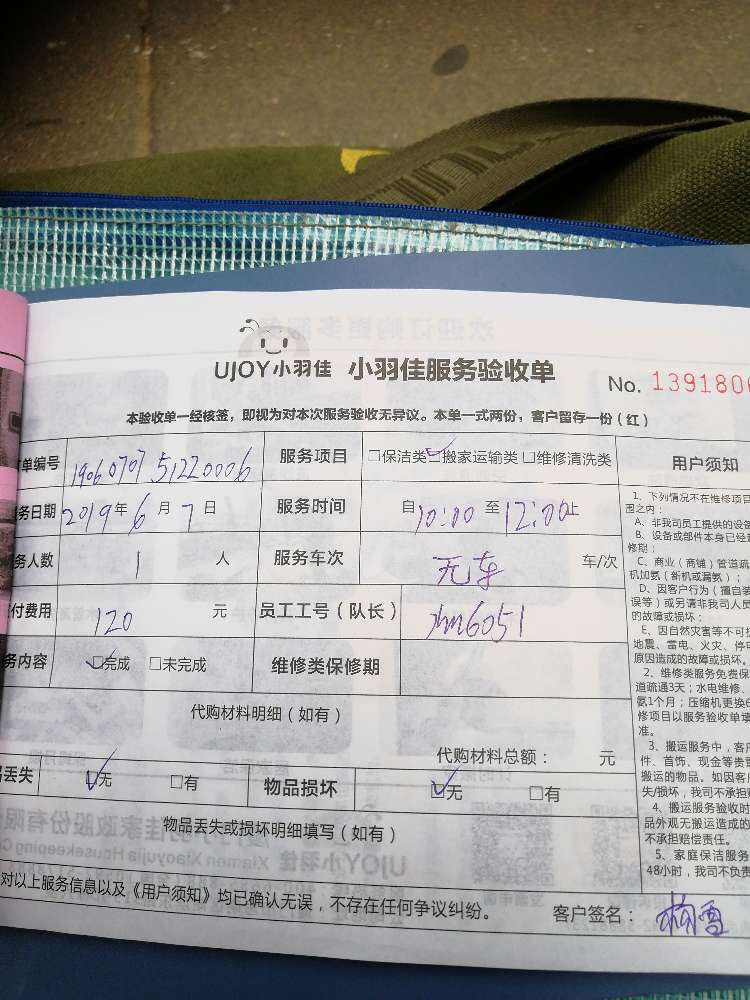 UJOY小羽佳 小羽佳服务验收单
No. 1391800
本验收单一经核签，即视为对本次服务验收无异议。本单一式两份，客户留存一份（红）
单编号 19060707 51220006 服务项目 □保洁类☑搬家运输类□维修清洗类 用户须知
务日期 2019年6月7日 服务时间 自10:00至12:00止
务人数 1 人 服务车次 无车 车/次
付费用 120 元 员工工号（队长） xm6051
务内容 ☑完成 □未完成 维修类保修期
代购材料明细（如有）
代购材料总额： 元
丢失 ☑无 □有 物品损坏 ☑无 □有
物品丢失或损坏明细填写（如有）
对以上服务信息以及《用户须知》均已确认无误，不存在任何争议纠纷。 客户签名：
1、下列情况不在维修项目
围之内：
A、非我司员工提供的设备
B、设备或部件本身已经
修期；
C、商业（商铺）管道疏
机加氨（新机或漏氨）；
D、因客户行为（擅自装
误等）或另请非我司人员
的故障或损坏；
E、因自然灾害等不可抗
地震、雷电、火灾、停电
原因造成的故障或损坏。
2、维修类服务免费保
道疏通3天；水电维修、
氨1个月；压缩机更换6
修项目以服务验收单填
准。
3、搬运服务中，客户
件、首饰、现金等贵
搬运的物品。如因客
失/损坏，我司不承担
4、搬运服务验收时
品外观无搬运造成的
不承担赔偿责任。
5、家庭保洁服务
48小时，我司不负责